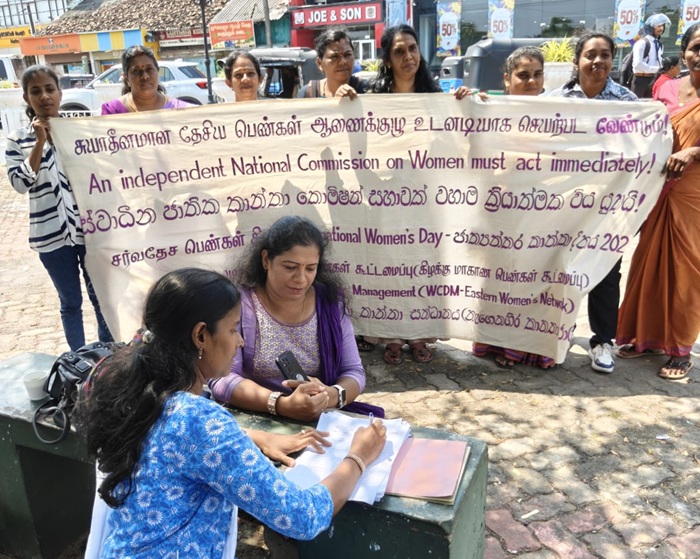 JOE & SON
50%
50%
50%
சுயாதீனமான தேசிய பெண்கள் ஆணைக்குழு உடனடியாக செயற்பட வேண்டும்!
An independent National Commission on Women must act immediately!
ස්වාධීන ජාතික කාන්තා කොමිෂන් සභාවක් වහාම ක්‍රියාත්මක විය යුතුයි!
சர்வதேச பெண்கள் தி National Women's Day - ජාත්‍යන්තර කාන්තා දිනය 202
கள் கூட்டமைப்பு (கிழக்கு மாகாண பெண்கள் கூட்டமைப்பு)
Management (WCDM-Eastern Women's Network)
කාන්තා සන්ධානය (නැගෙනහිර කාන්තා